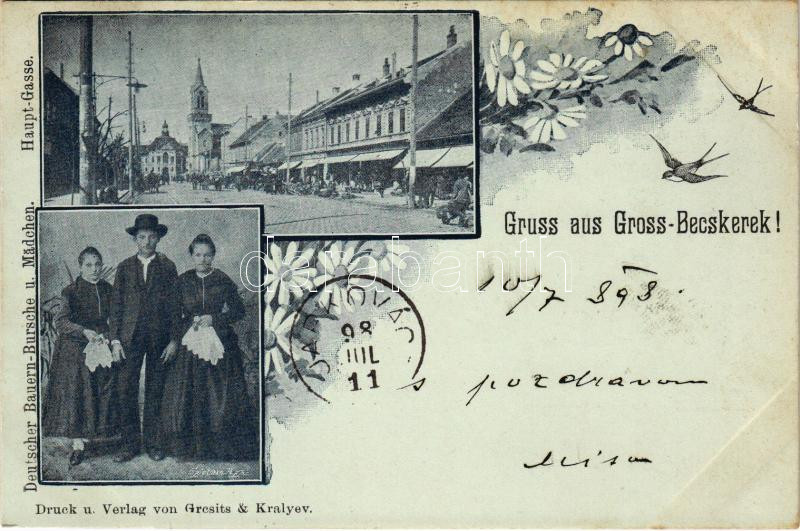 Haupt-Gasse.
Deutscher Bauern-Bursche u. Mädchen.
Gruss aus Gross-Becskerek!
darabanth
10/7 898.
98
JUL
11
s pozdravom
Druck u. Verlag von Gresits & Kralyev.